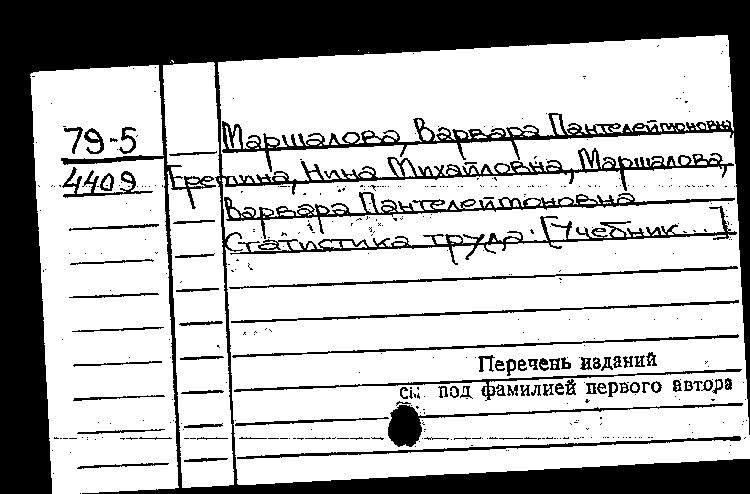 79-5 Маршалова, Варвара Пантелеймоновна
4409 Еремина, Нина Михайловна, Маршалова,
Варвара Пантелеймоновна
Статистика труда: [Учебник...]
Перечень изданий
см под фамилией первого автора